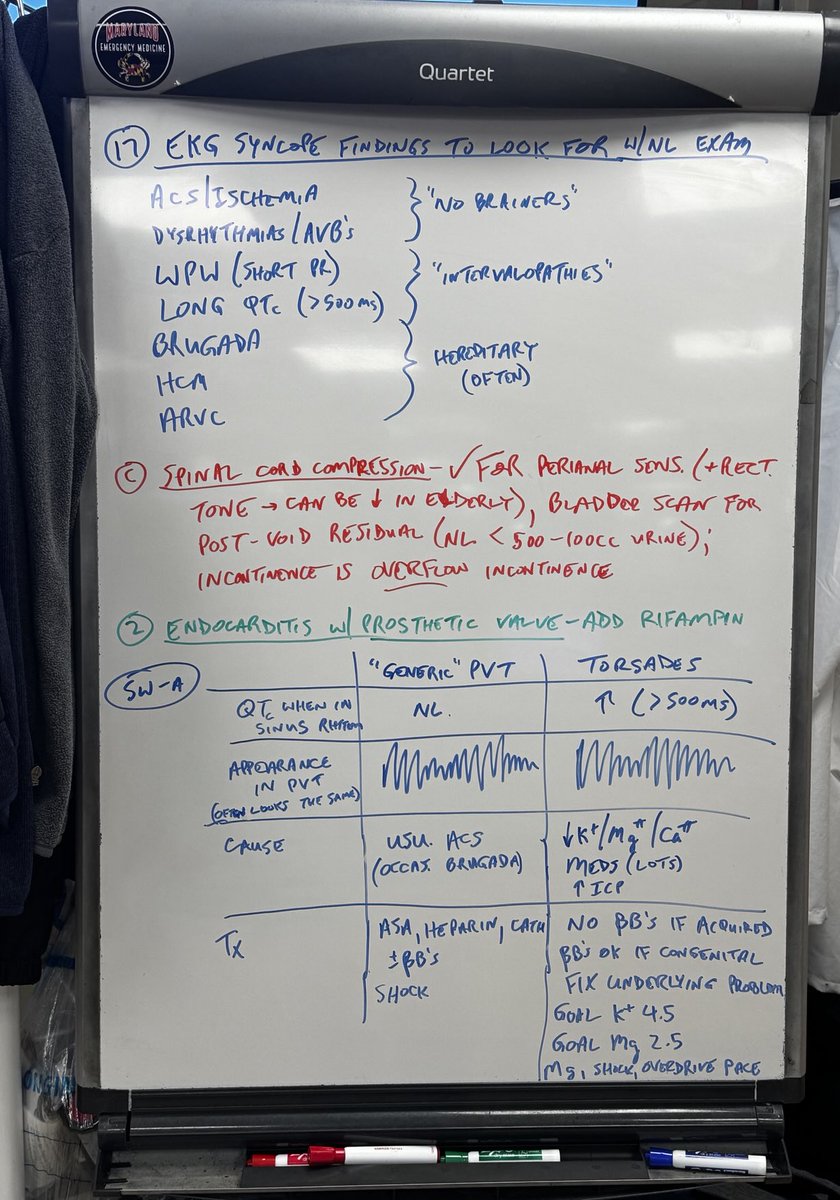 MARYLAND
EMERGENCY MEDICINE
Quartet
17 EKG SYNCOPE FINDINGS TO LOOK FOR W/NL EXAM
ACS/ISCHEMIA
DYSRHYTHMIAS/AVB's
"NO BRAINERS"
WPW (SHORT PR)
LONG QTc (>500ms)
"INTERVALOPATHIES"
BRUGADA
HCM
ARVC
HEREDITARY
(OFTEN)
C SPINAL CORD COMPRESSION - ✓ FOR PERIANAL SENS. (+RECT.
TONE → CAN BE ↓ IN ELDERLY), BLADDER SCAN FOR
POST-VOID RESIDUAL (NL < 500-100CC URINE);
INCONTINENCE IS OVERFLOW INCONTINENCE
2 ENDOCARDITIS w/ PROSTHETIC VALVE - ADD RIFAMPIN
SW-A
"GENERIC" PVT
TORSADES
QTc WHEN IN
SINUS RHYTHM
NL.
↑ (>500ms)
APPEARANCE
IN PVT
(OFTEN LOOKS THE SAME)
CAUSE
USU. ACS
(OCCAS. BRUGADA)
↓K+/Mg++/Ca++
MEDS (LOTS)
↑ ICP
Tx
ASA, HEPARIN, CATH
±BB's
SHOCK
NO BB'S IF ACQUIRED
BB's OK IF CONGENITAL
FIX UNDERLYING PROBLEM
GOAL K+ 4.5
GOAL Mg 2.5
Mg, SHOCK, OVERDRIVE PACE